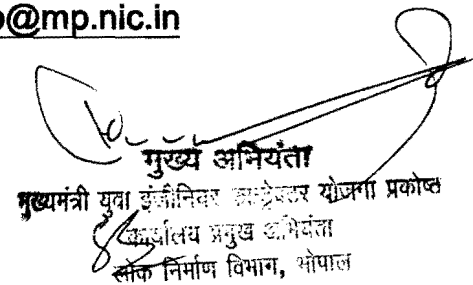 @mp.nic.in
मुख्य अभियंता
मुख्यमंत्री युवा इंजीनियर कान्ट्रेक्टर योजना प्रकोष्ठ
कार्यालय प्रमुख अभियंता
लोक निर्माण विभाग, भोपाल